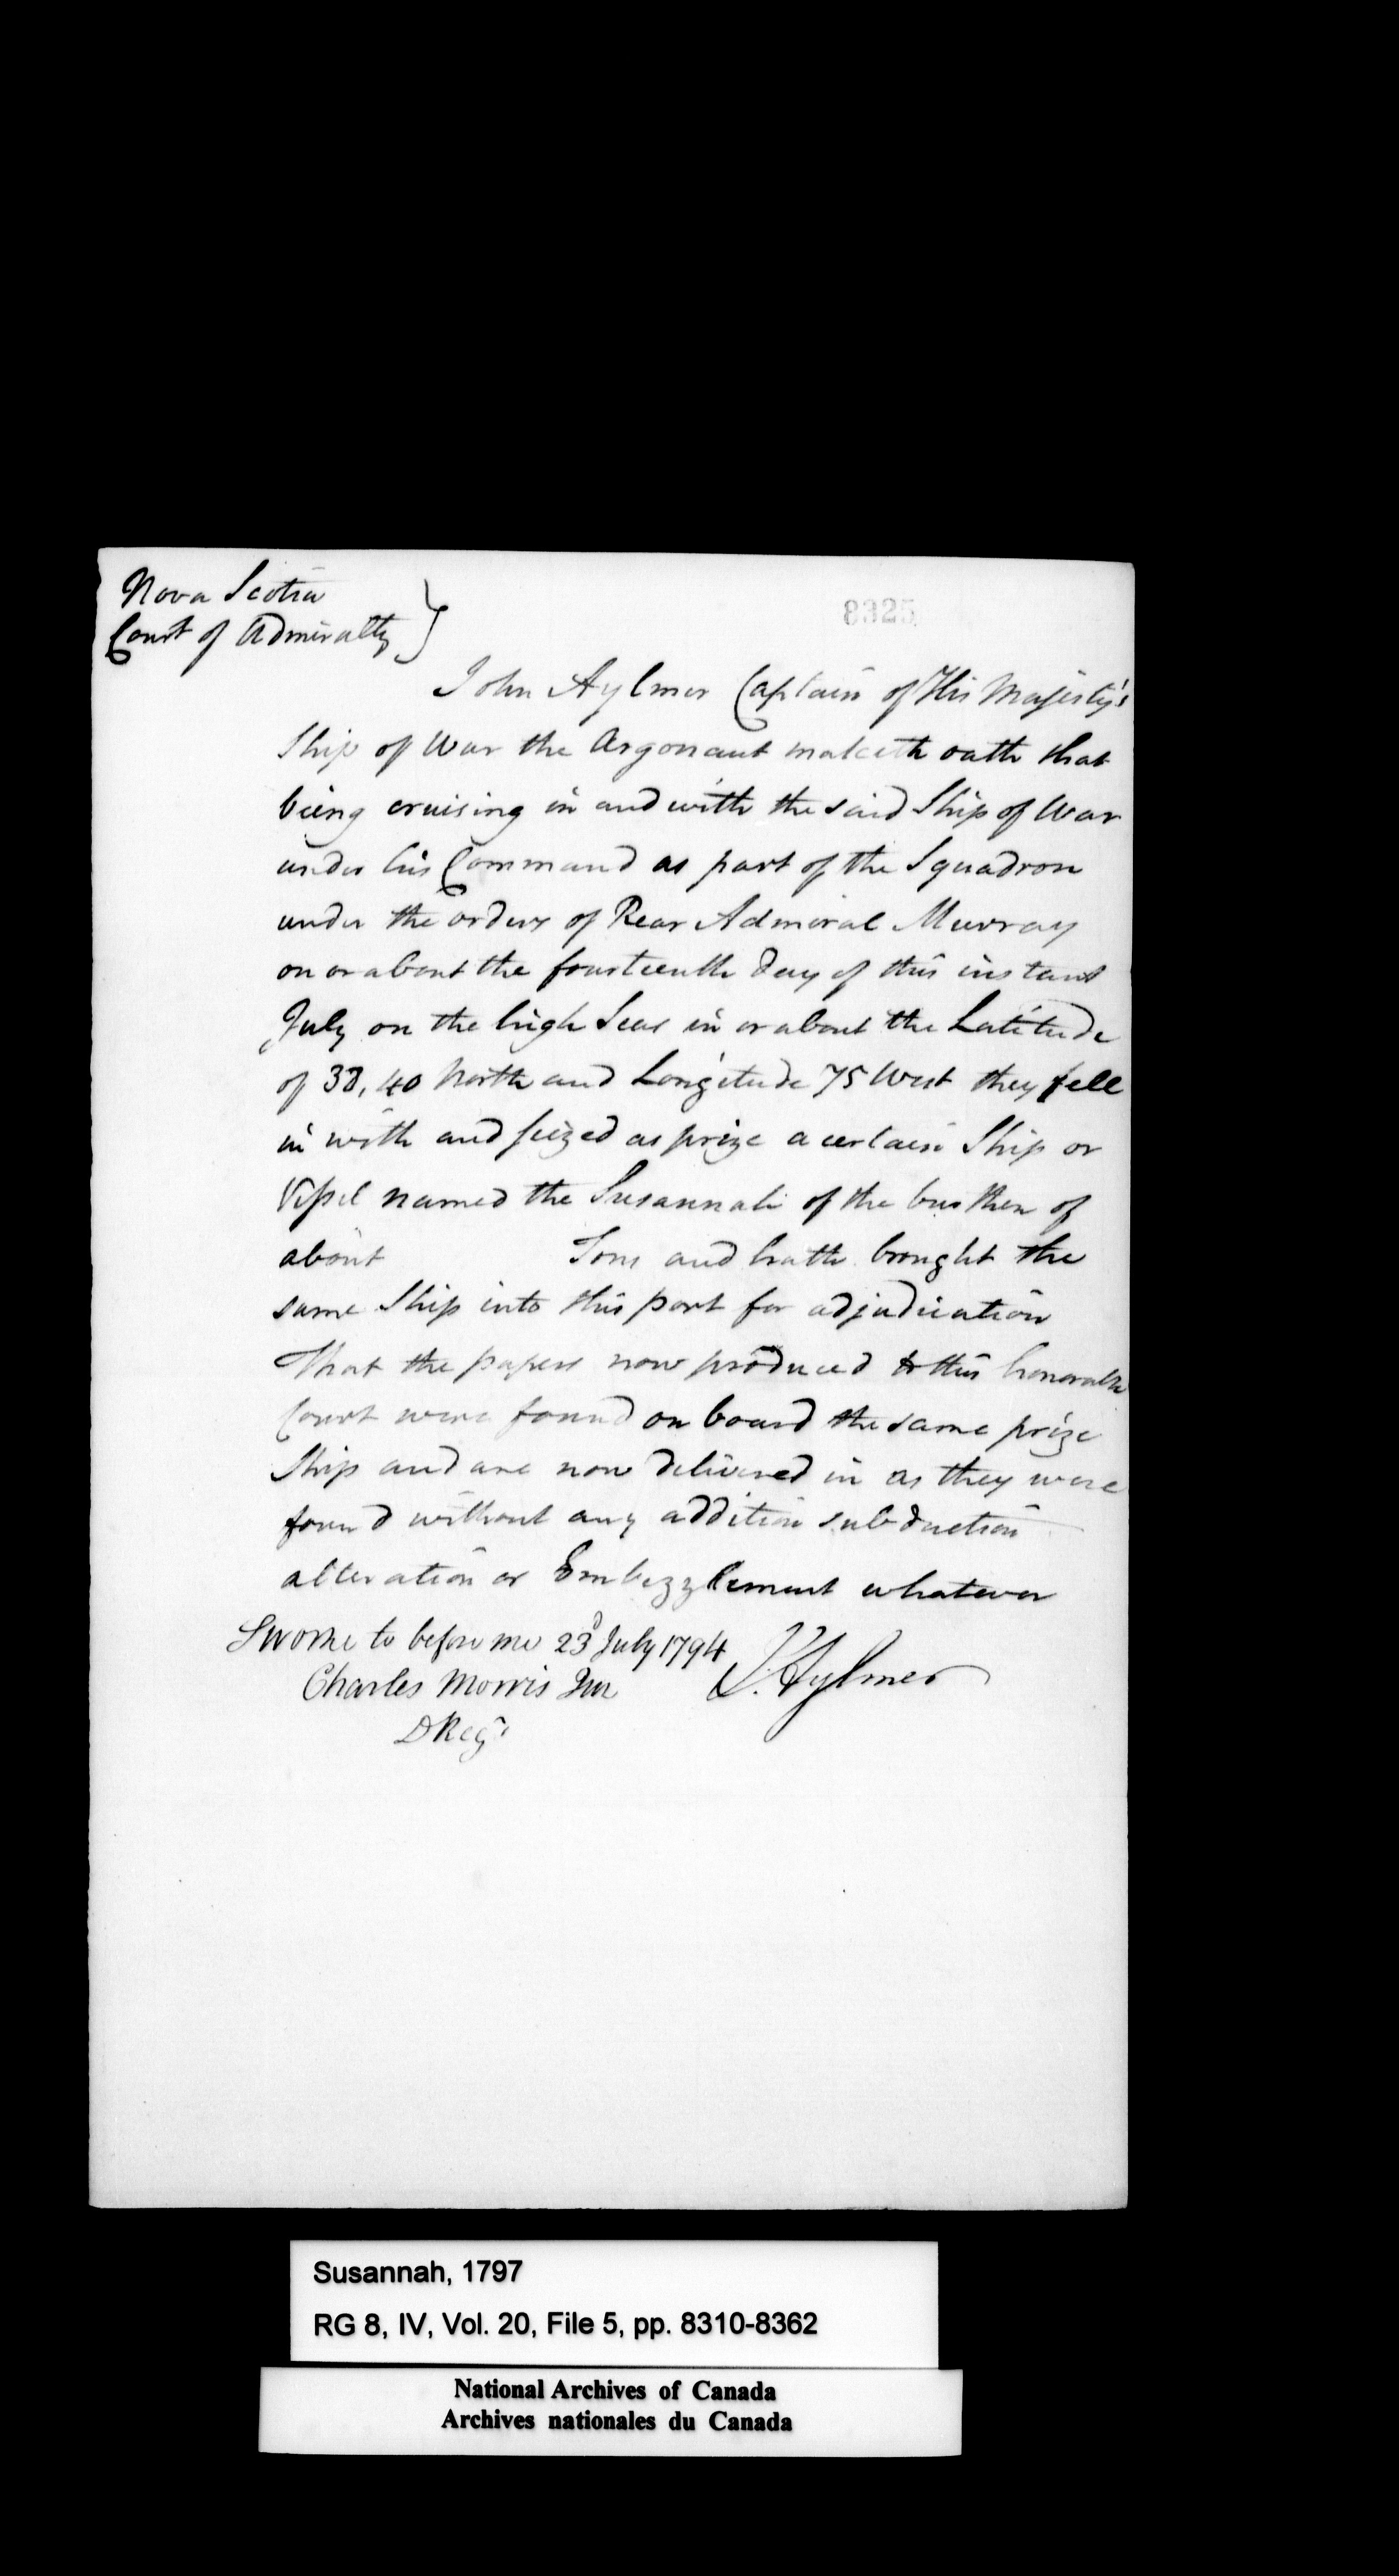 Nova Scotia
Court of Admiralty }
8325
John Aylmer Captain of His Majesty's
Ship of War the Argonaut maketh oath that
being cruising in and with the said Ship of War
under his Command as part of the Squadron
under the orders of Rear Admiral Murray
on or about the fourteenth day of this instant
July on the high Seas in or about the Latitude
of 38,40 North and Longitude 75 West they fell
in with and seized as prize a certain Ship or
Vessel named the Susannah of the burthen of
about Tons and hath brought the
same Ship into this port for adjudication
That the papers now produced to this honorable
Court were found on board the same prize
Ship and are now delivered in as they were
found without any addition subduction
alteration or Embezzlement whatever
Sworne to before me 23d July 1794
J. Aylmer
Charles Morris Jun
D Regr
Susannah, 1797
RG 8, IV, Vol. 20, File 5, pp. 8310-8362
National Archives of Canada
Archives nationales du Canada